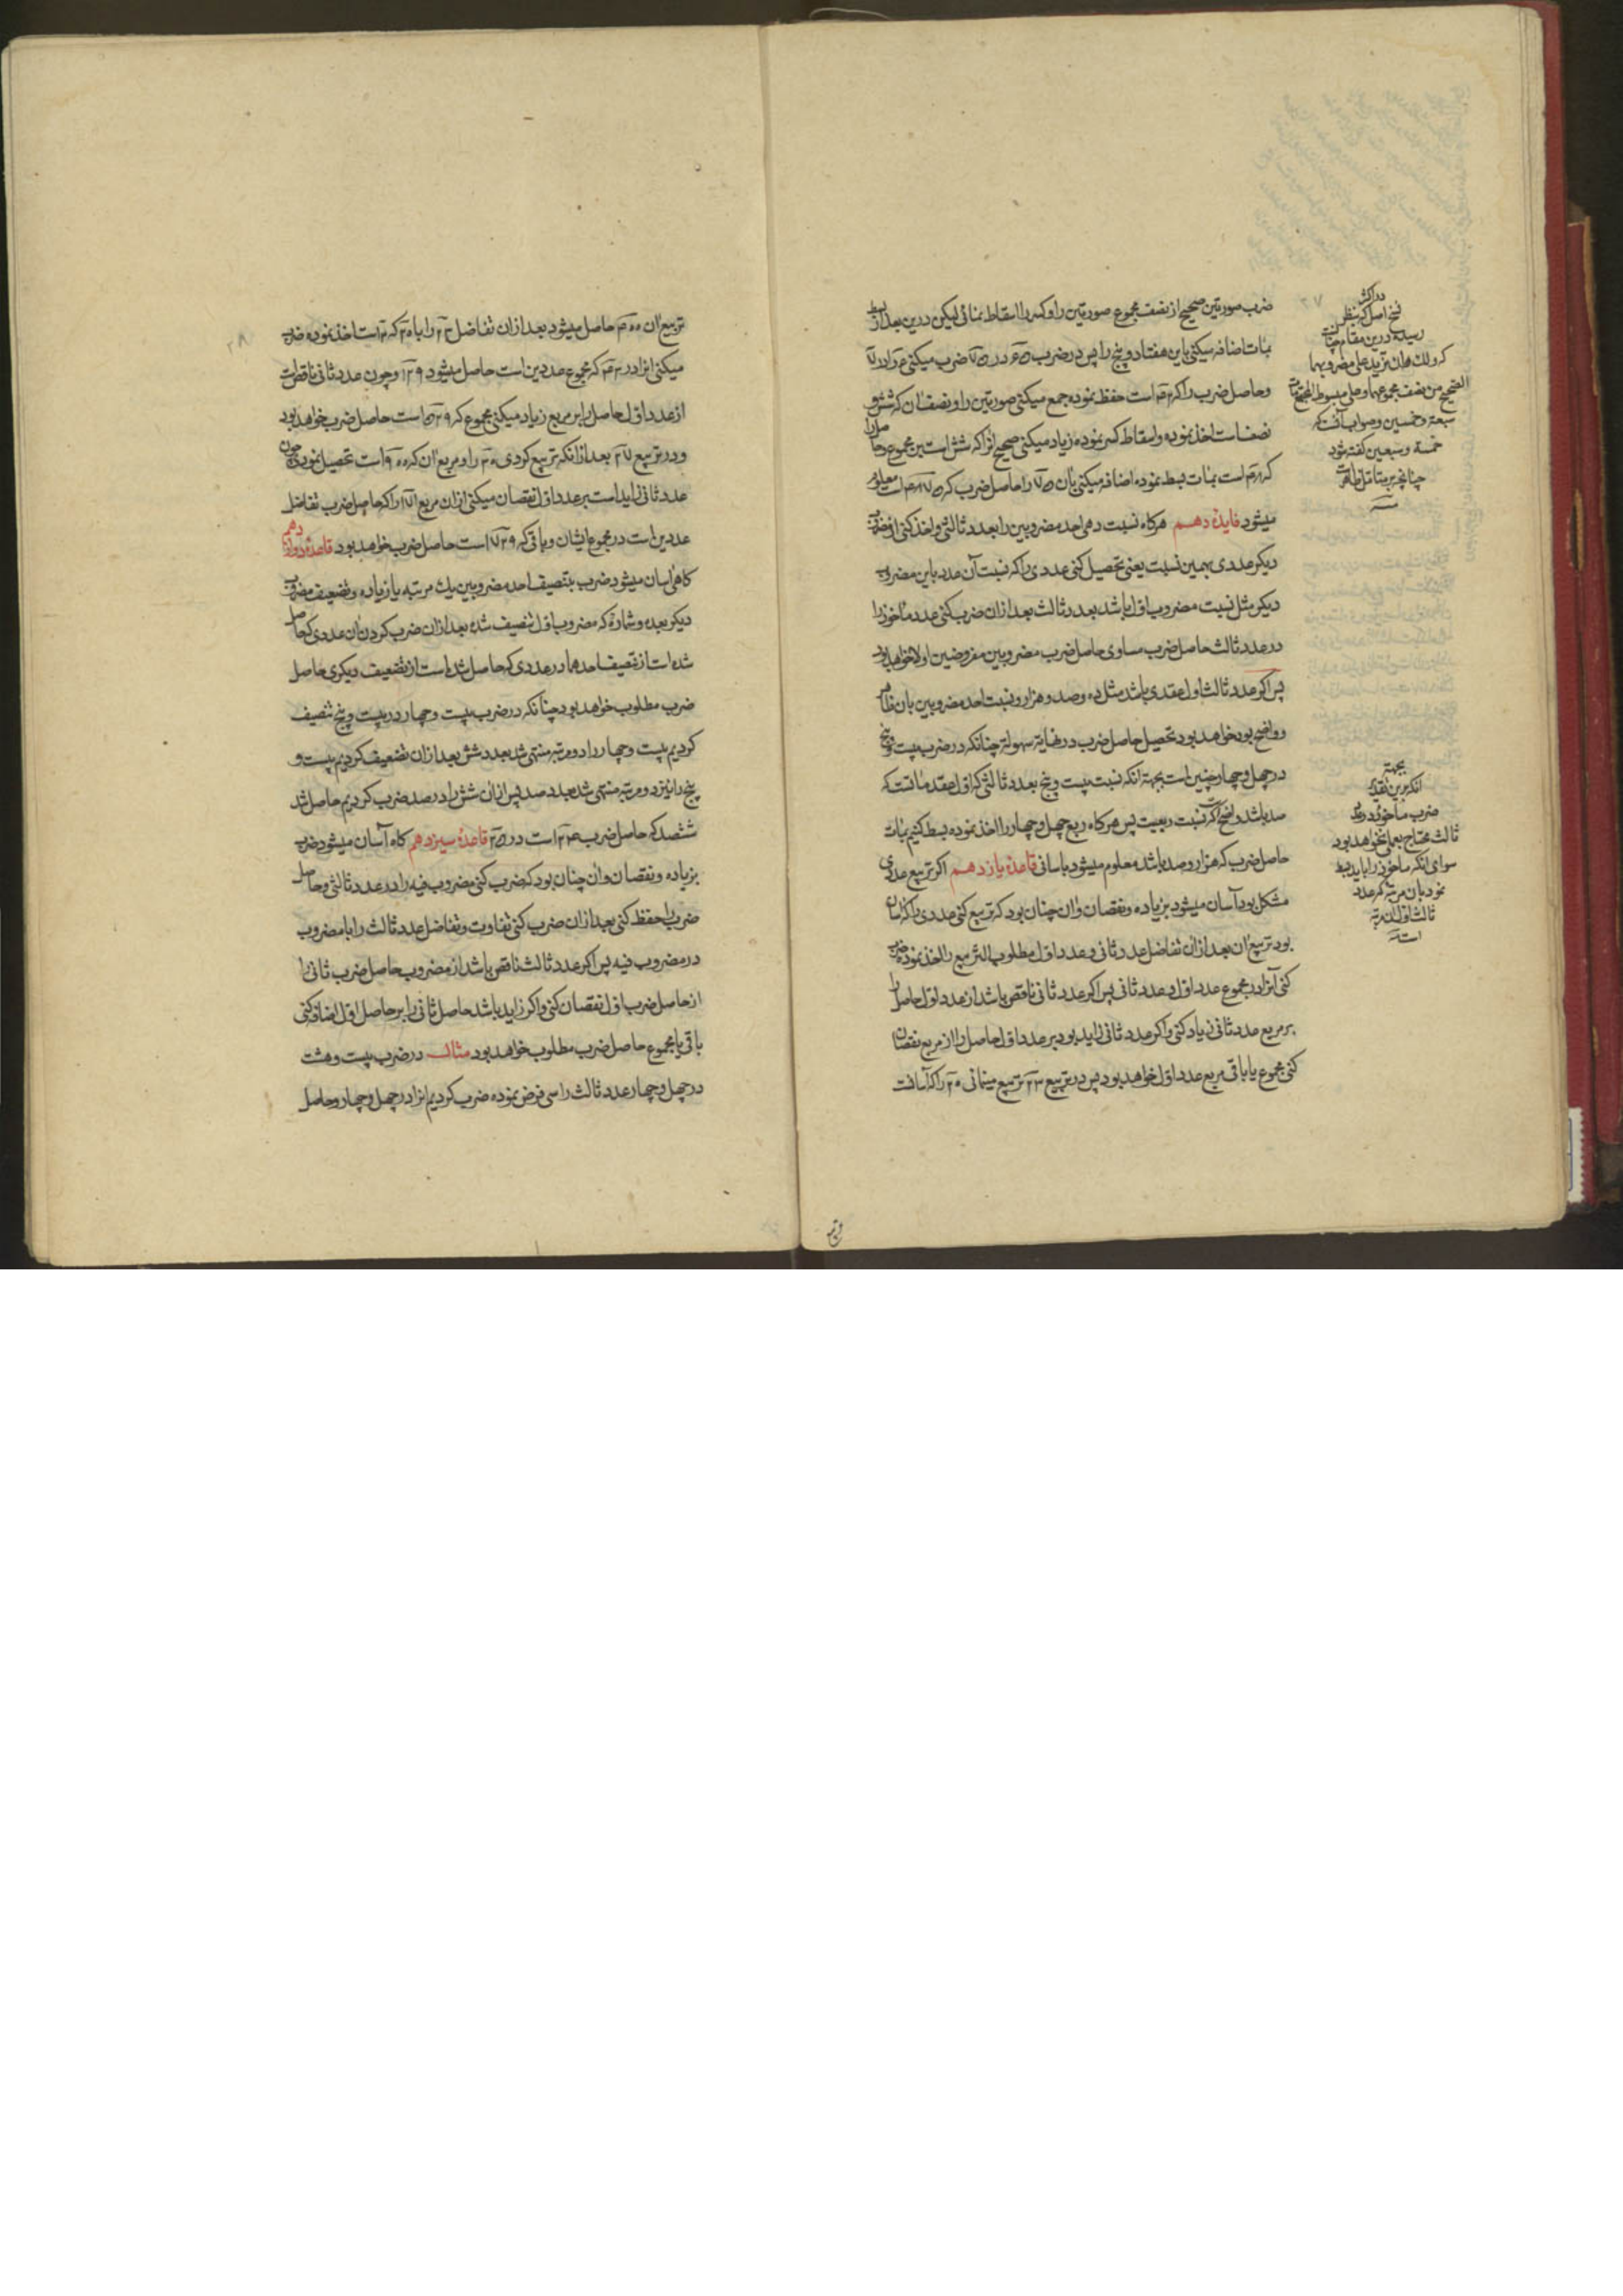 ضرب صورتین صحیح از نصف مجموع صورتین را و کسر را اسقاط نمائی لیکن درین بعد از بسط
بمئات اضافه میکنی باین هفتاد و پنج را پس در ضرب ۶۵ در ۷۵ ضرب میکنی ۶ را در ۷
و حاصل ضرب را که ۴۲ است حفظ نموده جمع میکنی صورتین را و نصف آن که شش و
نصف است اخذ نموده و اسقاط کسر نموده زیاد میکنی صحیح انرا که شش است بین مجموع حاصل را
که ۴۸ است بمئات بسط نموده اضافه میکنی بان ۷۵ را حاصل ضرب که ۴۸۷۵ است معلوم
میشود فایده دهم هرکاه نسبت دهی احد مضروبین را بعدد ثالثی و اخذ کنی از مضروب
دیکر عددی بهمین نسبت یعنی تحصیل کنی عددی را که نسبت آن عدد باین مضروب
دیکر مثل نسبت مضروب اول باشد بعدد ثالث بعد از ان ضرب کنی عدد ماخوذ را
در عدد ثالث حاصل ضرب مساوی حاصل ضرب مضروبین مفروضین اولا خواهد بود
پس اکر عدد ثالث اول عقدی باشد مثل ده و صد و هزار و نسبت احد مضروبین بان ظاهر
و واضح بود خواهد بود تحصیل حاصل ضرب در نهایة سهولة چنانکه در ضرب بیست و پنج
در چهل و چهار چنین است بجهة انکه نسبت بیست و پنج بعدد ثالثی که اول عقد مآتست که
صد باشد واضح است که نسبت ربعیت پس هرکاه ربع چهل و چهار را اخذ نموده بسط کنیم بمئات
حاصل ضرب که هزار و صد باشد معلوم میشود باسانی قاعدۀ یازدهم اکر تربیع عددی
مشکل بود آسان میشود بزیاده و نقصان و ان چنان بود که تربیع کنی عددی را که آسان
بود تربیع ان بعد ازان تفاضل عدد ثانی و عدد اول مطلوب التربیع را اخذ نموده ضرب
کنی آنرا در مجموع عدد اول و عدد ثانی پس اکر عدد ثانی ناقص باشد از عدد اول حاصل را
بر مربع عدد ثانی زیاد کنی و اکر عدد ثانی زاید بود بر عدد اول حاصل را از مربع نقصان
کنی مجموع یا باقی مربع عدد اول خواهد بود پس در تربیع ۲۳ تربیع مینمائی ۲۰ را که آسانست
در اکثر
نسخ اصل که بنظر
رسیده درین مقام چنانست
که و لک هان تزید علی مضروبهما
الصحیح من نصف مجموعهما و علی مبسوط المجتمع مئات
سبعة و خمسین و صواب آنست که
خمسة و سبعین کفته شود
چنانچه بر متامل ظاهر است
بجهة
انکه برین تقدیر
ضرب ماخوذ در عدد
ثالث محتاج بعملی نخواهد بود
سوای انکه ماخوذ را باید بسط
نمود بان مرتبه که عدد
ثالث اول ان مرتبه
است
تربیع ان ۴۰۰ حاصل میشود بعد ازان تفاضل ۲۳ را با ۲۰ که ۳ است اخذ نموده ضرب
میکنی انرا در ۴۳ که مجموع عددین است حاصل میشود ۱۲۹ و چون عدد ثانی ناقص است
از عدد اول حاصل را بر مربع زیاد میکنی مجموع که ۵۲۹ است حاصل ضرب خواهد بود
و در تربیع ۲۷ بعد از انکه تربیع کردی ۳۰ را و مربع ان که ۹۰۰ است تحصیل نمودی چون
عدد ثانی زاید است بر عدد اول نقصان میکنی ازان مربع ۱۷۱ را که حاصل ضرب تفاضل
عددین است در مجموع ایشان و باقی که ۷۲۹ است حاصل ضرب خواهد بود قاعدۀ دوازدهم
کاهی اسان میشود ضرب بتنصیف احد مضروبین یک مرتبه یا زیاده و تضعیف مضروب
دیکر بعده و شماره که مضروب اول تنصیف شده بعد ازان ضرب کردن ان عددی که حاصل
شده است از تنصیف احدهما در عددی که حاصل شده است از تضعیف دیکری حاصل
ضرب مطلوب خواهد بود چنانکه در ضرب بیست و چهار در بیست و پنج تنصیف
کردیم بیست و چهار را دو مرتبه منتهی شد بعدد شش بعد ازان تضعیف کردیم بیست و
پنج را نیز دو مرتبه منتهی شد بعدد صد پس ازان شش را در صد ضرب کردیم حاصل شد
ششصد که حاصل ضرب ۲۴ است در ۲۵ قاعدۀ سیزدهم کاه آسان میشود ضرب
بزیاده و نقصان و ان چنان بود که ضرب کنی مضروب فیه را در عدد ثالثی و حاصل
ضرب را حفظ کنی بعد ازان ضرب کنی تفاوت و تفاضل عدد ثالث را با مضروب
در مضروب فیه پس اکر عدد ثالث ناقص باشد از مضروب حاصل ضرب ثانی را
از حاصل ضرب اول نقصان کنی و اکر زاید باشد حاصل ثانی را بر حاصل اول اضافه کنی
باقی یا مجموع حاصل ضرب مطلوب خواهد بود مثال در ضرب بیست و هشت
در چهل و چهار عدد ثالث را سی فرض نموده ضرب کردیم انرا در چهل و چهار و حاصل